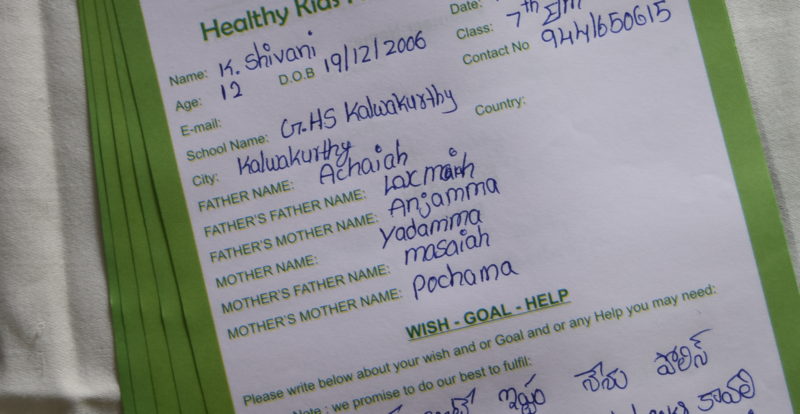 Healthy Kids
Date:
Name: K. Shivani
Class: 7th E/m
Age: 12 D.O.B 19/12/2006
Contact No 9441650615
E-mail:
School Name: G.HS Kalwakurthy
City: Kalwakurthy Country:
FATHER NAME: Achaiah
FATHER'S FATHER NAME: Laxmaiah
FATHER'S MOTHER NAME: Anjamma
MOTHER NAME: Yadamma
MOTHER'S FATHER NAME: masaiah
MOTHER'S MOTHER NAME: Pochama
WISH - GOAL - HELP
Please write below about your wish and or Goal and or any Help you may need:
Note : we promise to do our best to fulfil:
ఇష్టం నేను పోలీస్
కావాలి